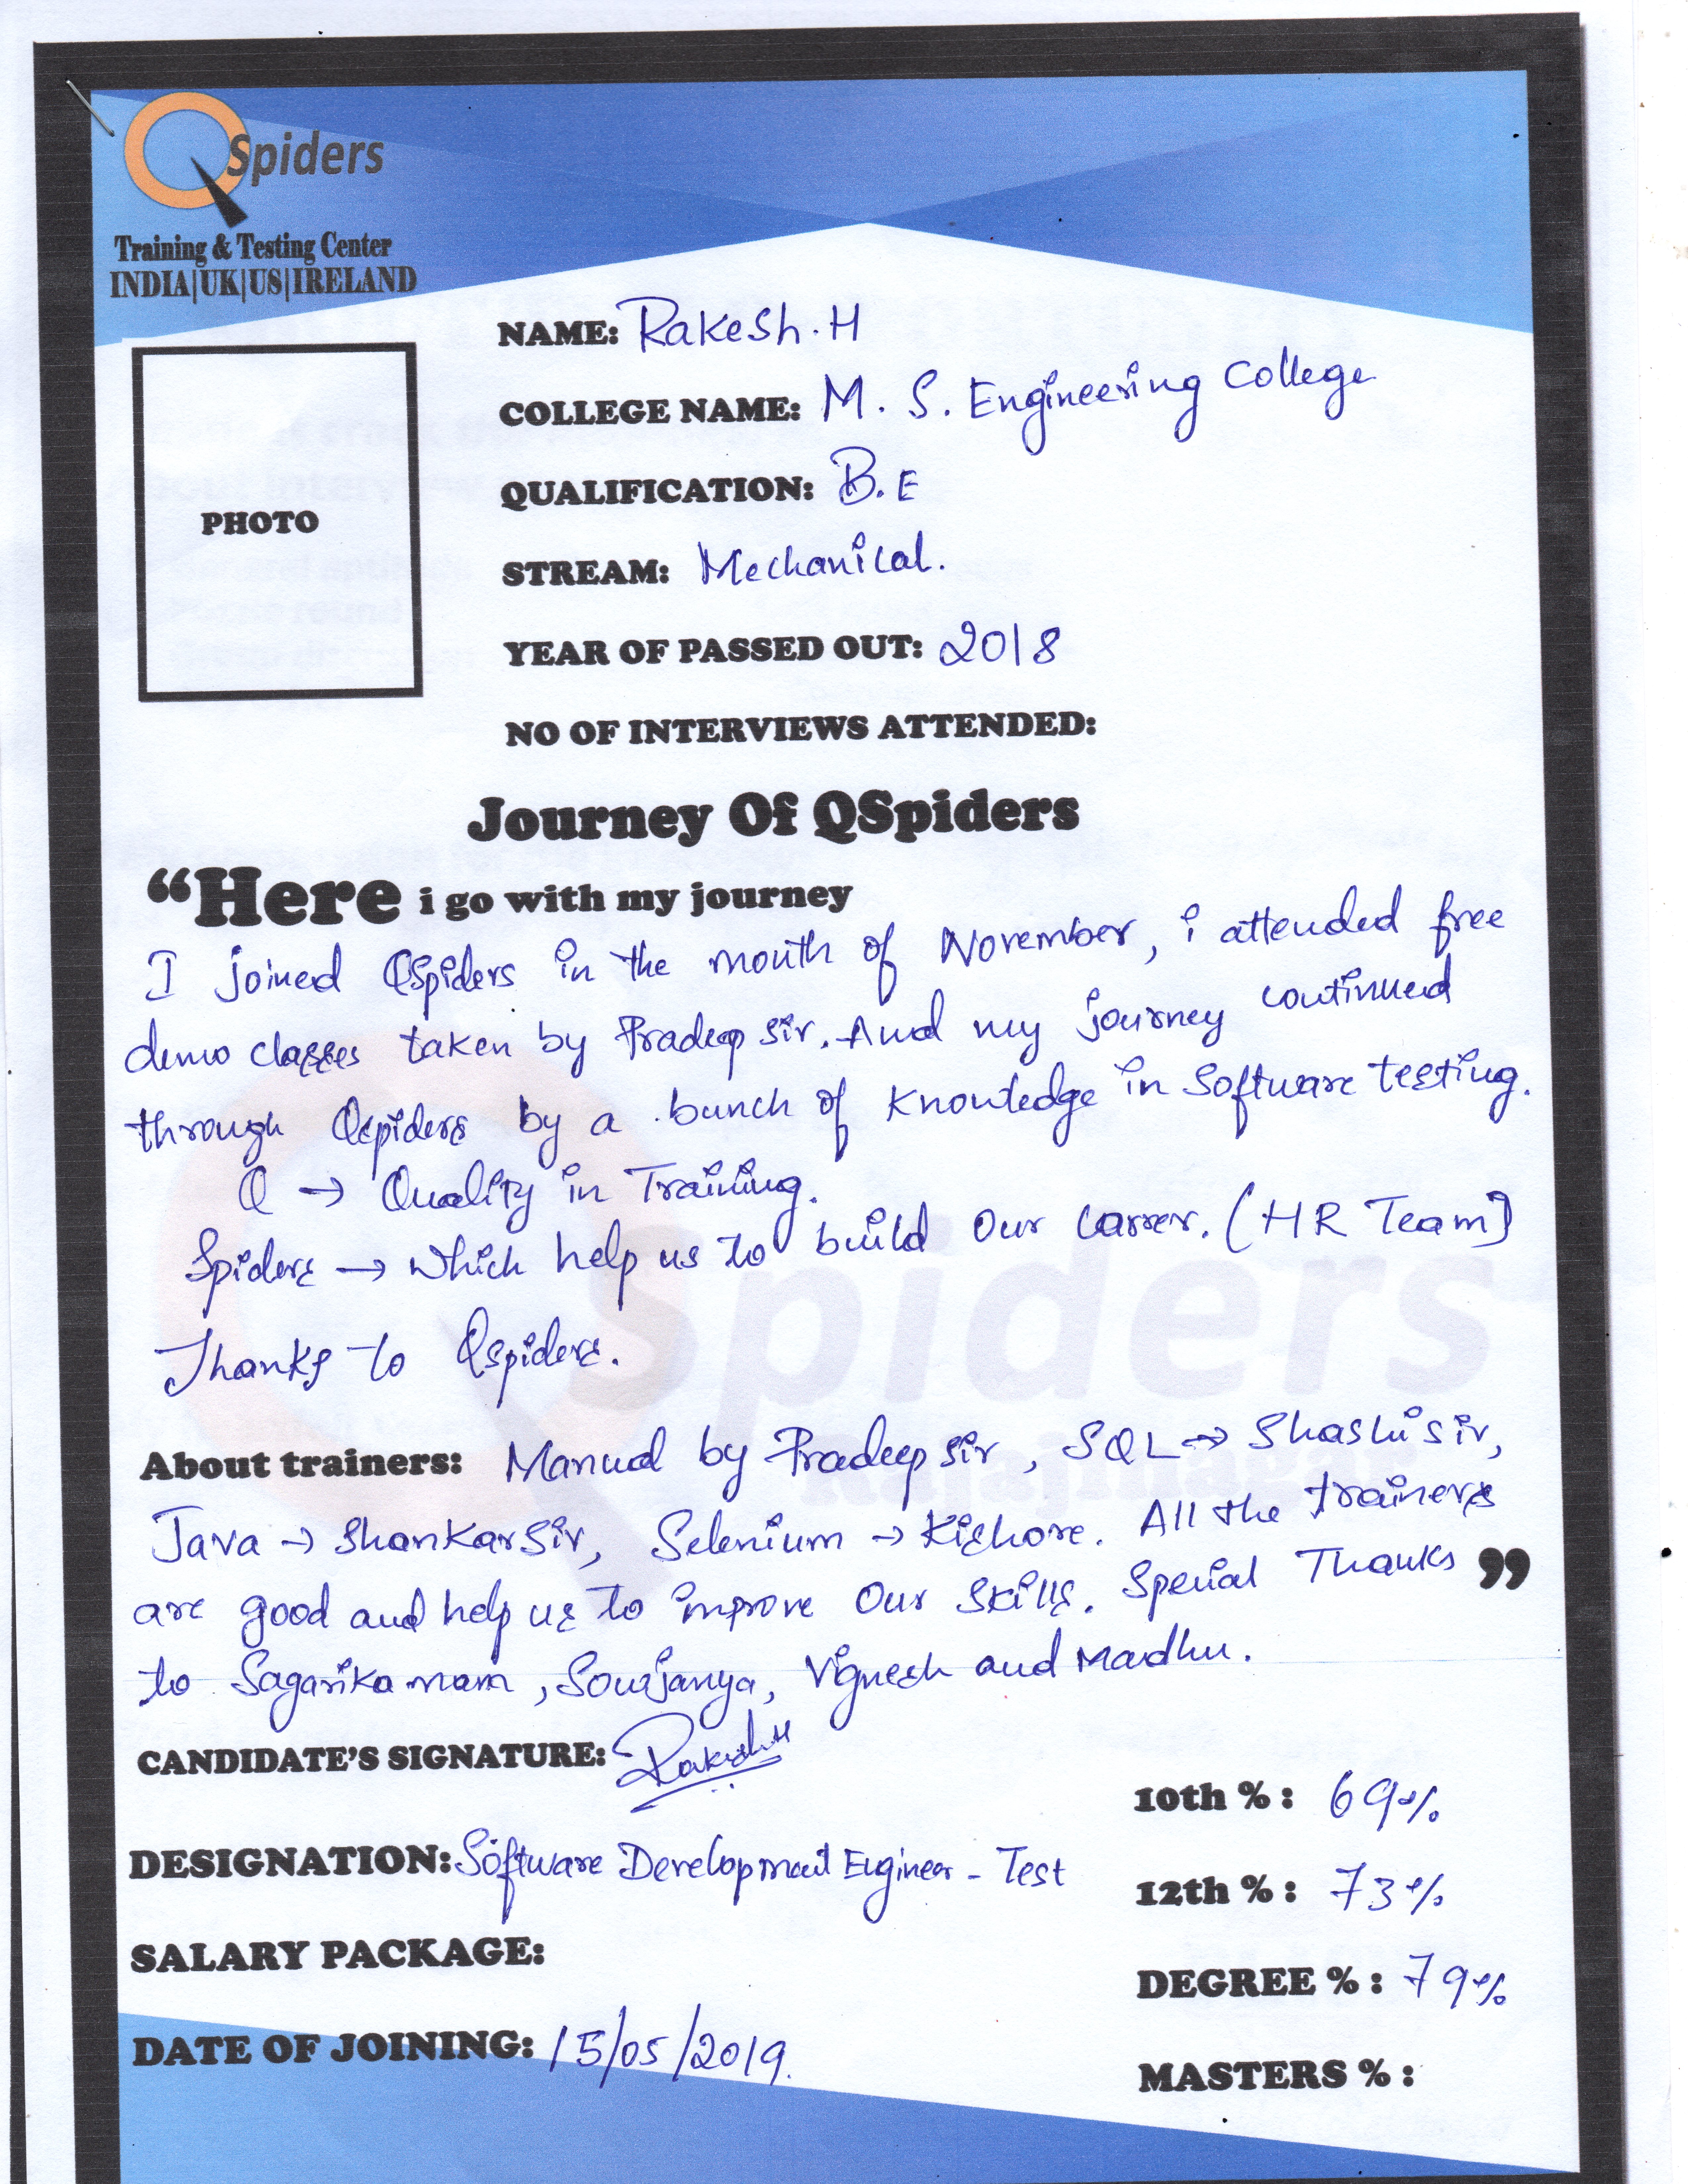 QSpiders
Training & Testing Center
INDIA|UK|US|IRELAND
PHOTO
NAME: Rakesh.H
COLLEGE NAME: M. S. Engineering College
QUALIFICATION: B.E
STREAM: Mechanical.
YEAR OF PASSED OUT: 2018
NO OF INTERVIEWS ATTENDED:
Journey Of QSpiders
“Here i go with my journey
I joined QSpiders in the month of November, i attended free
demo classes taken by Pradeep sir. And my journey continued
through Qspiders by a bunch of Knowledge in Software testing.
Q → Quality in Training.
Spiders → Which help us to build our carrer. (HR Team)
Thanks to Qspiders.
About trainers: Manual by Pradeep sir, SQL → Shashi sir,
Java → Shankar Sir, Selenium → Kishore. All the trainers
are good and help us to improve Our Skills. Special Thanks ”
to Sagarika mam, Sowjanya, Vignesh and Madhu.
CANDIDATE'S SIGNATURE: Rakesh H
DESIGNATION: Software Development Engineer - Test
SALARY PACKAGE:
DATE OF JOINING: 15/05/2019.
10th % : 69%
12th % : 73%
DEGREE % : 79%
MASTERS % :
Spiders
Rajajinagar